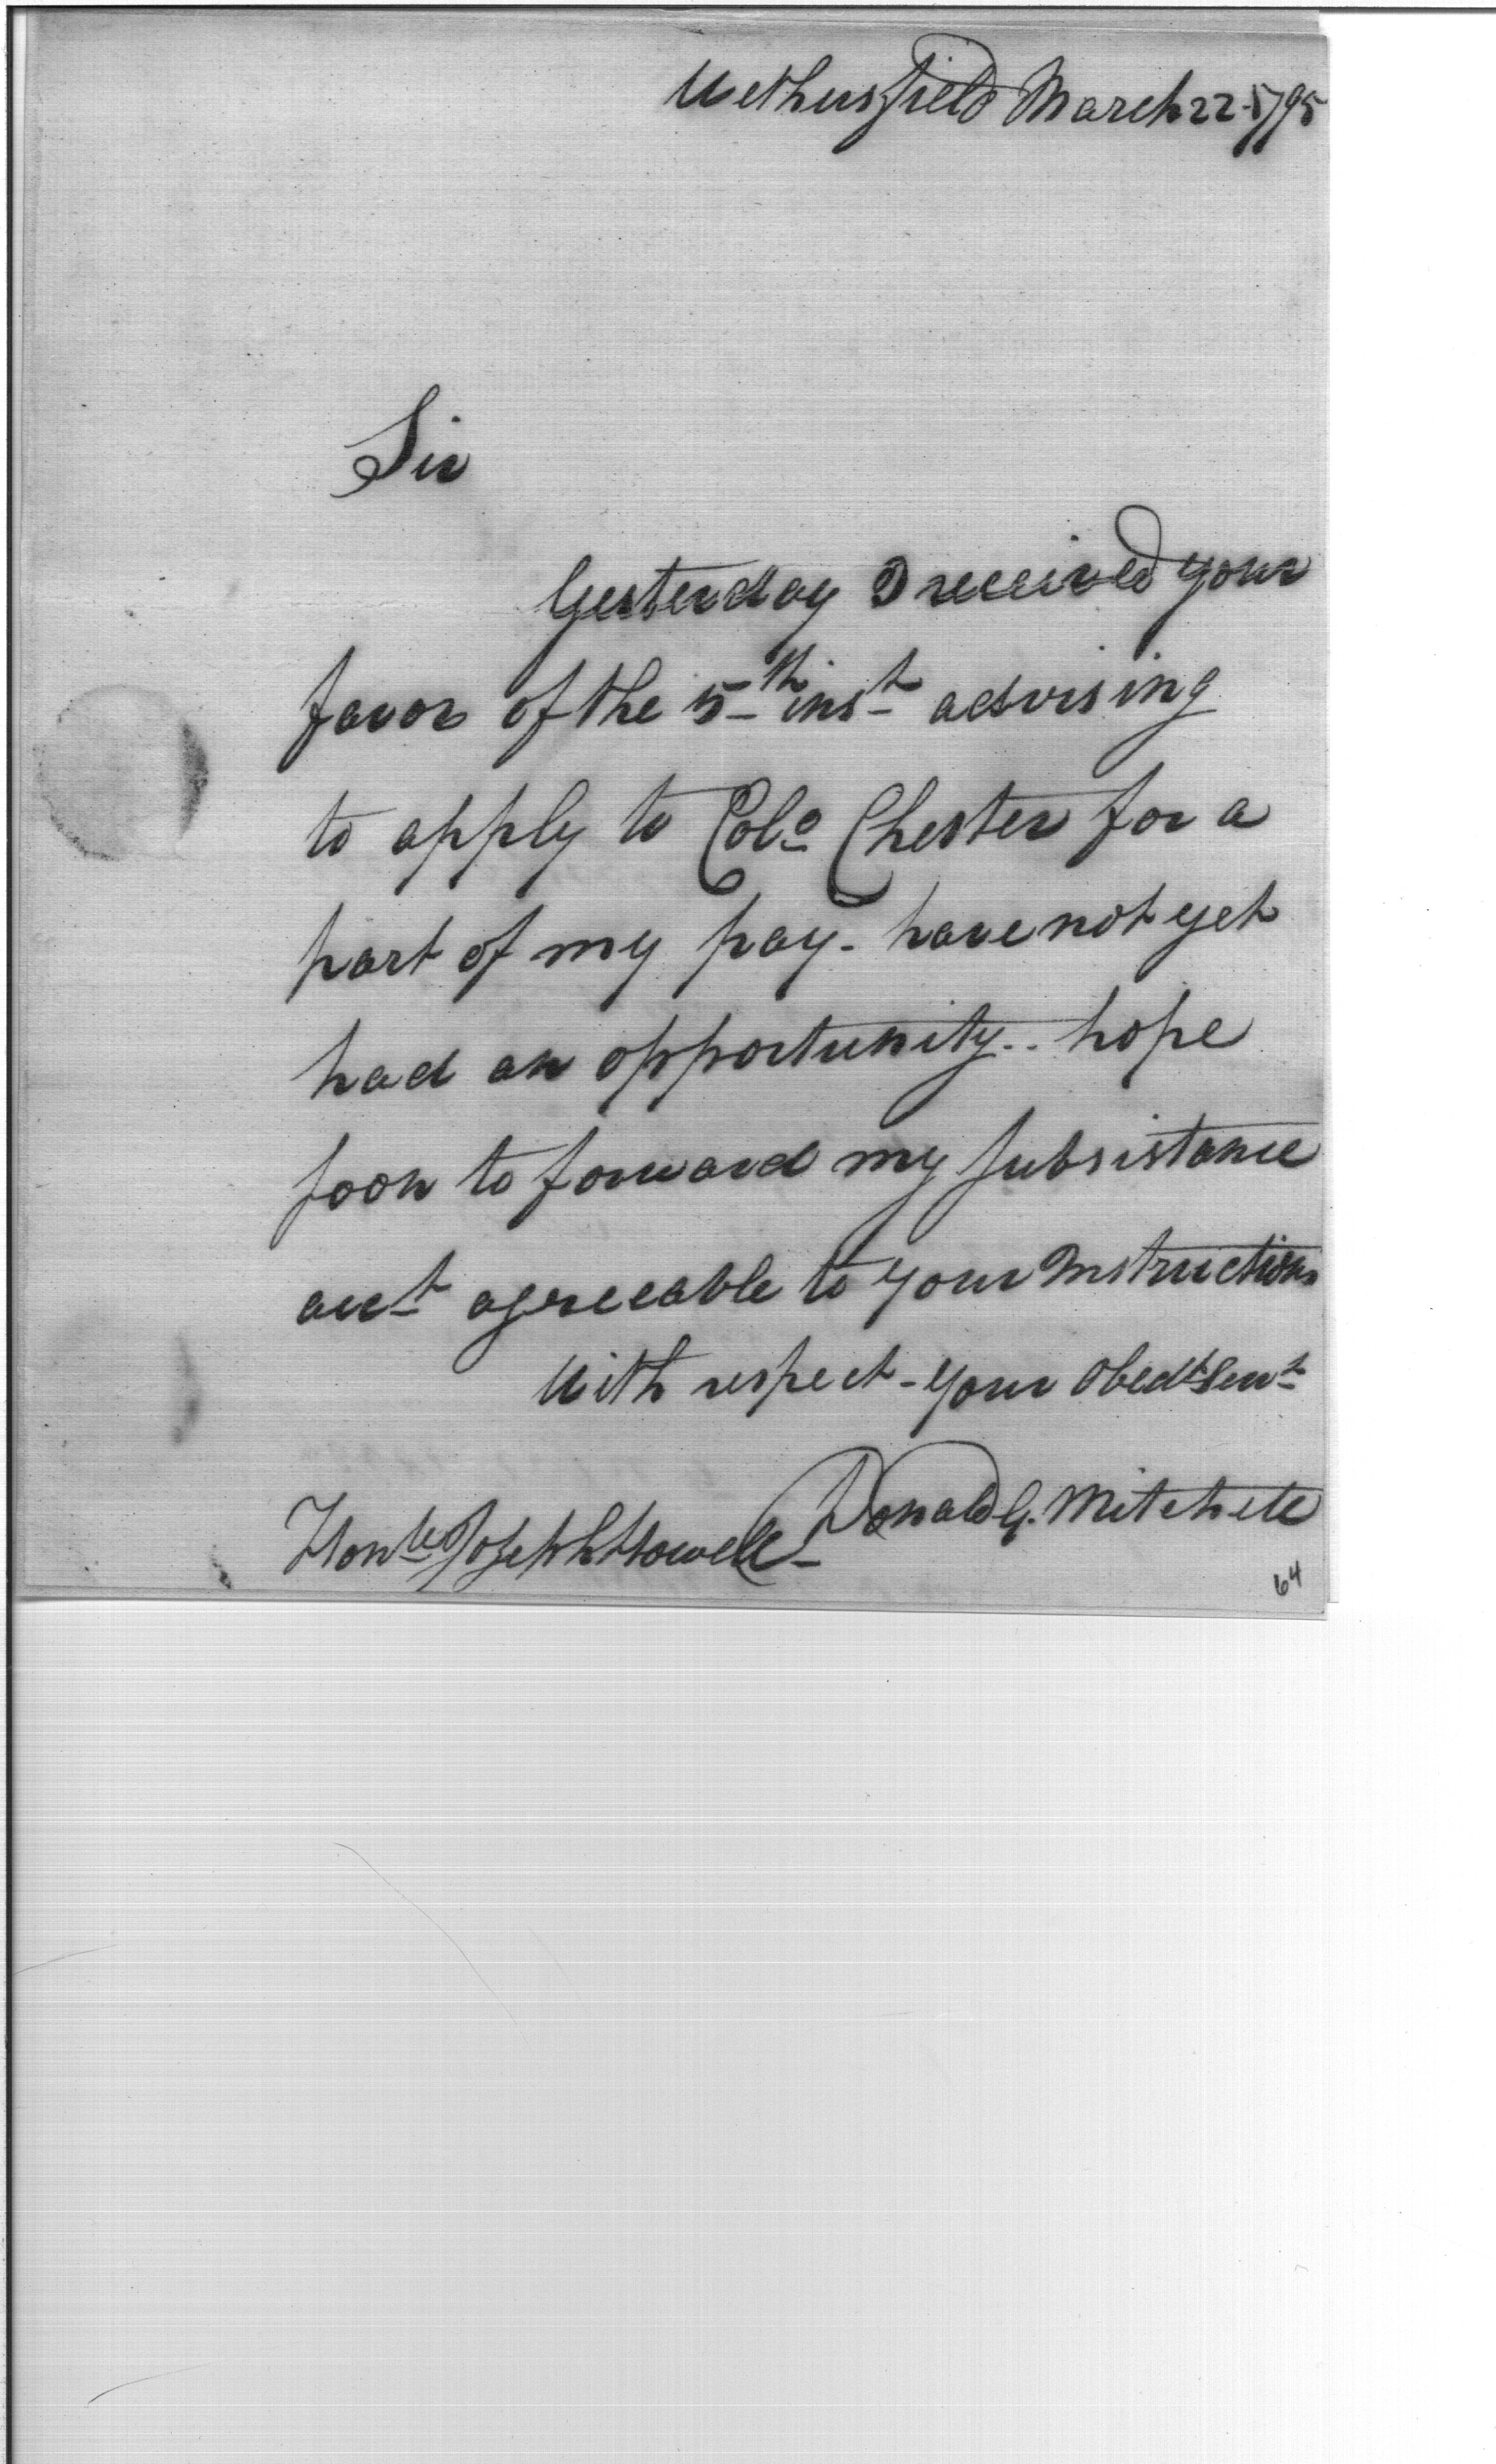 Wethersfield March 22. 1795
Sir
Yesterday I received your
favor of the 5th inst advising
to apply to Colo Chester for a
part of my pay - have not yet
had an opportunity.. hope
soon to forward my subsistance
acct agreeable to your Instructions
With respect - your Obedt Servt
Donald G. Mitchell
Honble Joseph Howell -
64